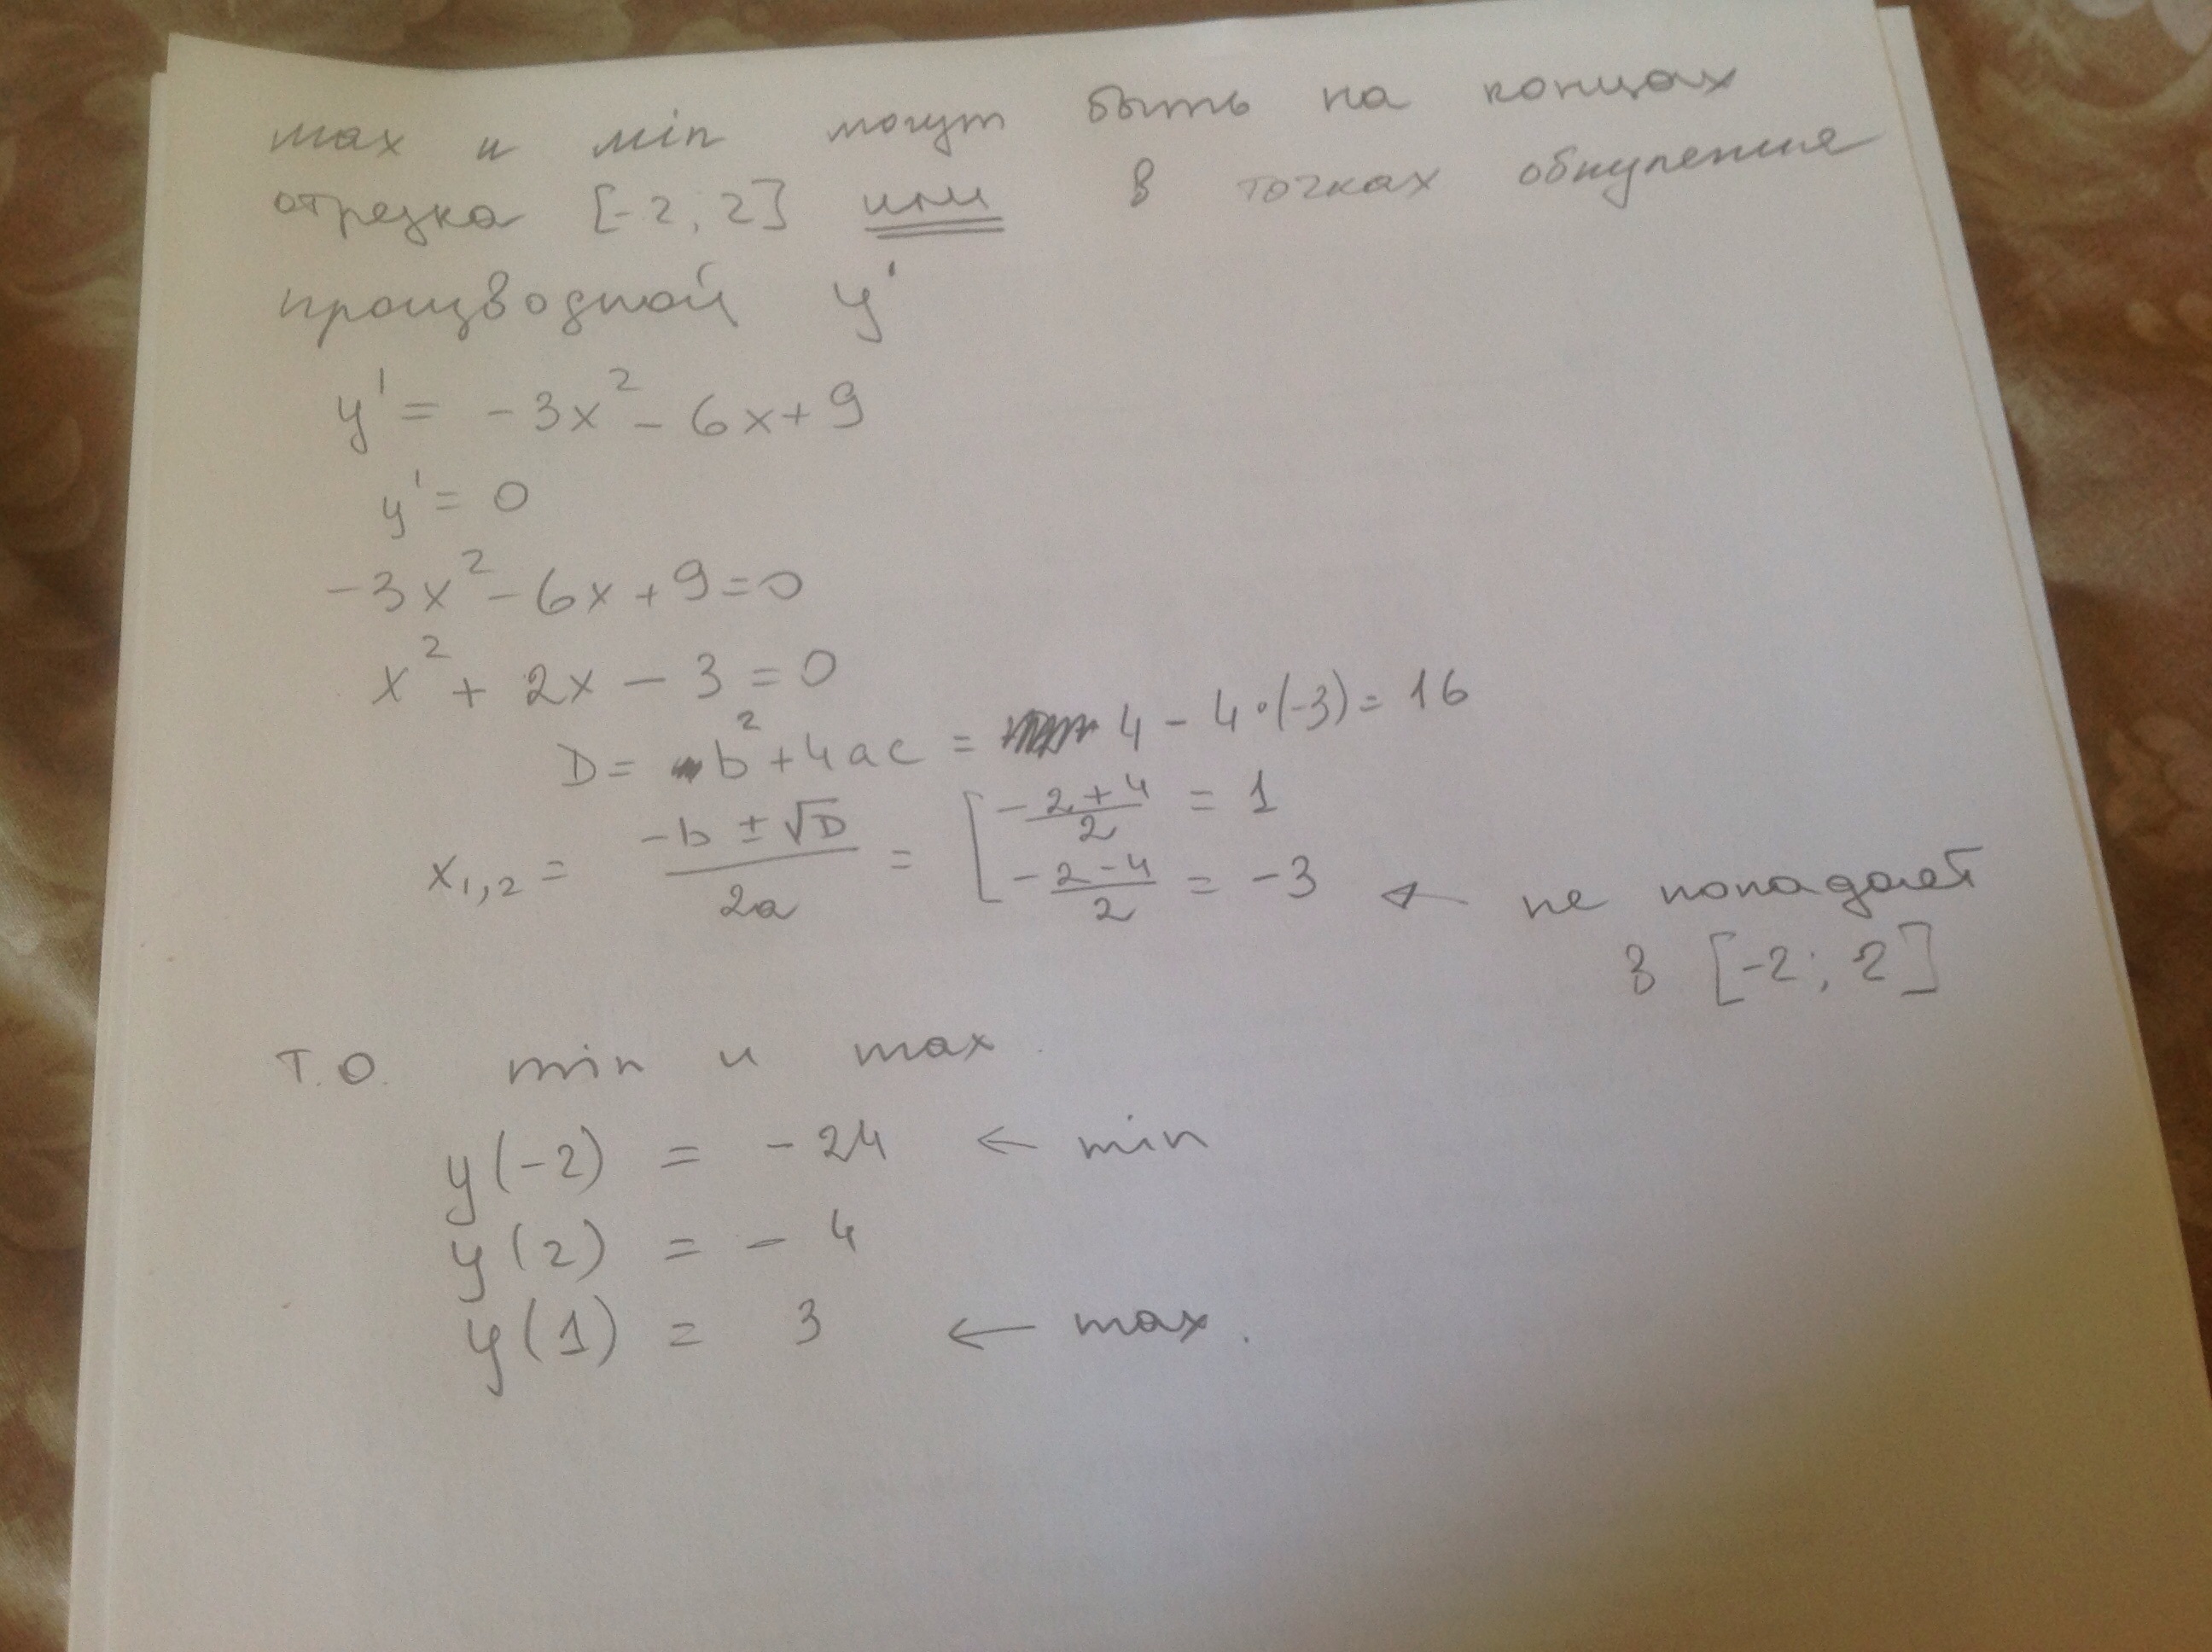 max и min могут быть на концах
отрезка [-2; 2] или в точках обнуления
производной y'
y' = -3x² - 6x + 9
y' = 0
-3x² - 6x + 9 = 0
x² + 2x - 3 = 0
D = b² + 4ac = 4 - 4·(-3) = 16
x₁,₂ = (-b ± √D)/2a = [ (-2+4)/2 = 1
(-2-4)/2 = -3 ← не попадает
в [-2; 2]
т.о. min и max
y(-2) = -24 ← min
y(2) = -4
y(1) = 3 ← max.